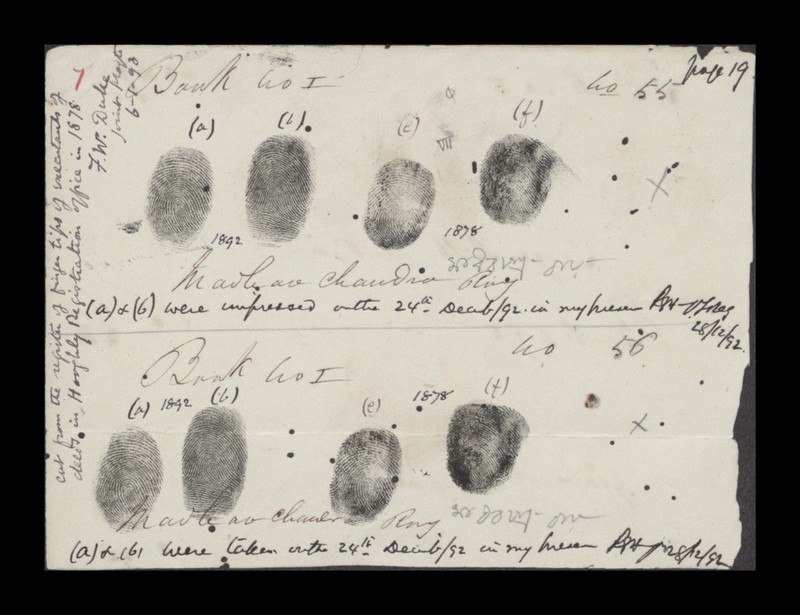 page 19
Book No I
No 55
(a) (b) (e) (f)
1892 1878
Madhav chandra Roy
(a) & (b) were impressed on the 24th Decemb/92 in my presen
28/12/92
Book No I
No 56
(a) 1892 (b) (e) 1878 (f)
Madhav chandra Roy
(a) & (b) were taken on the 24th Decemb/92 in my presen 28/12/92
cut from the register of finger tips of executants of
deeds in Hooghly Registration office in 1878
F. W. Duke
Joint Magte